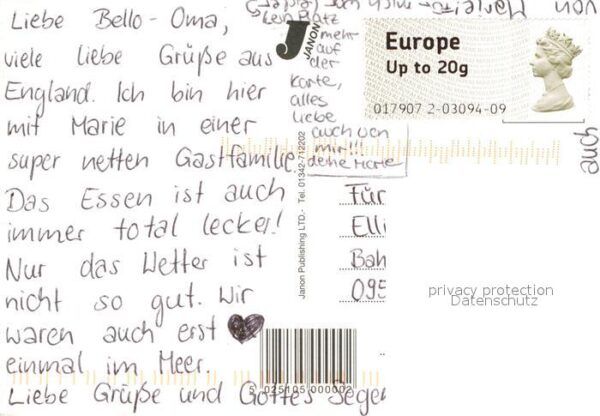 Liebe Bello-Oma,
viele liebe Grüße aus
England. Ich bin hier
mit Marie in einer
super netten Gastfamilie.
Das Essen ist auch
immer total lecker!
Nur das Wetter ist
nicht so gut. Wir
waren auch erst
einmal im Meer.
Liebe Grüße und Gottes Segen
von
auch
kein Platz
mehr
auf
der
Karte,
alles
liebe
auch von
mir!!!
deine Marie
J
JANON
Janon Publishing LTD.- Tel. 01342-712202
Europe
Up to 20g
017907 2-03094-09
Für
Elli
Bah
095
privacy protection
Datenschutz
5 025105 000002